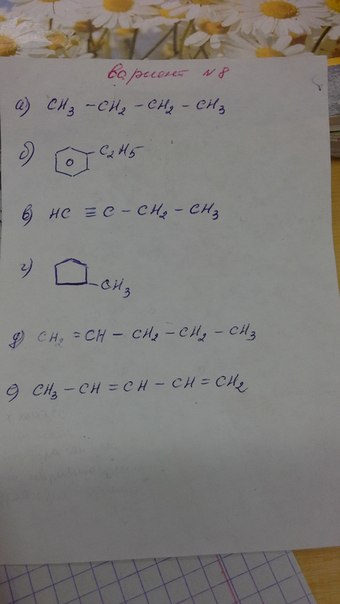 Вариант №8
а) CH3 – CH2 – CH2 – CH3
б) C2H5
в) HC ≡ C – CH2 – CH3
г) CH3
д) CH2 = CH – CH2 – CH2 – CH3
е) CH3 – CH = CH – CH = CH2